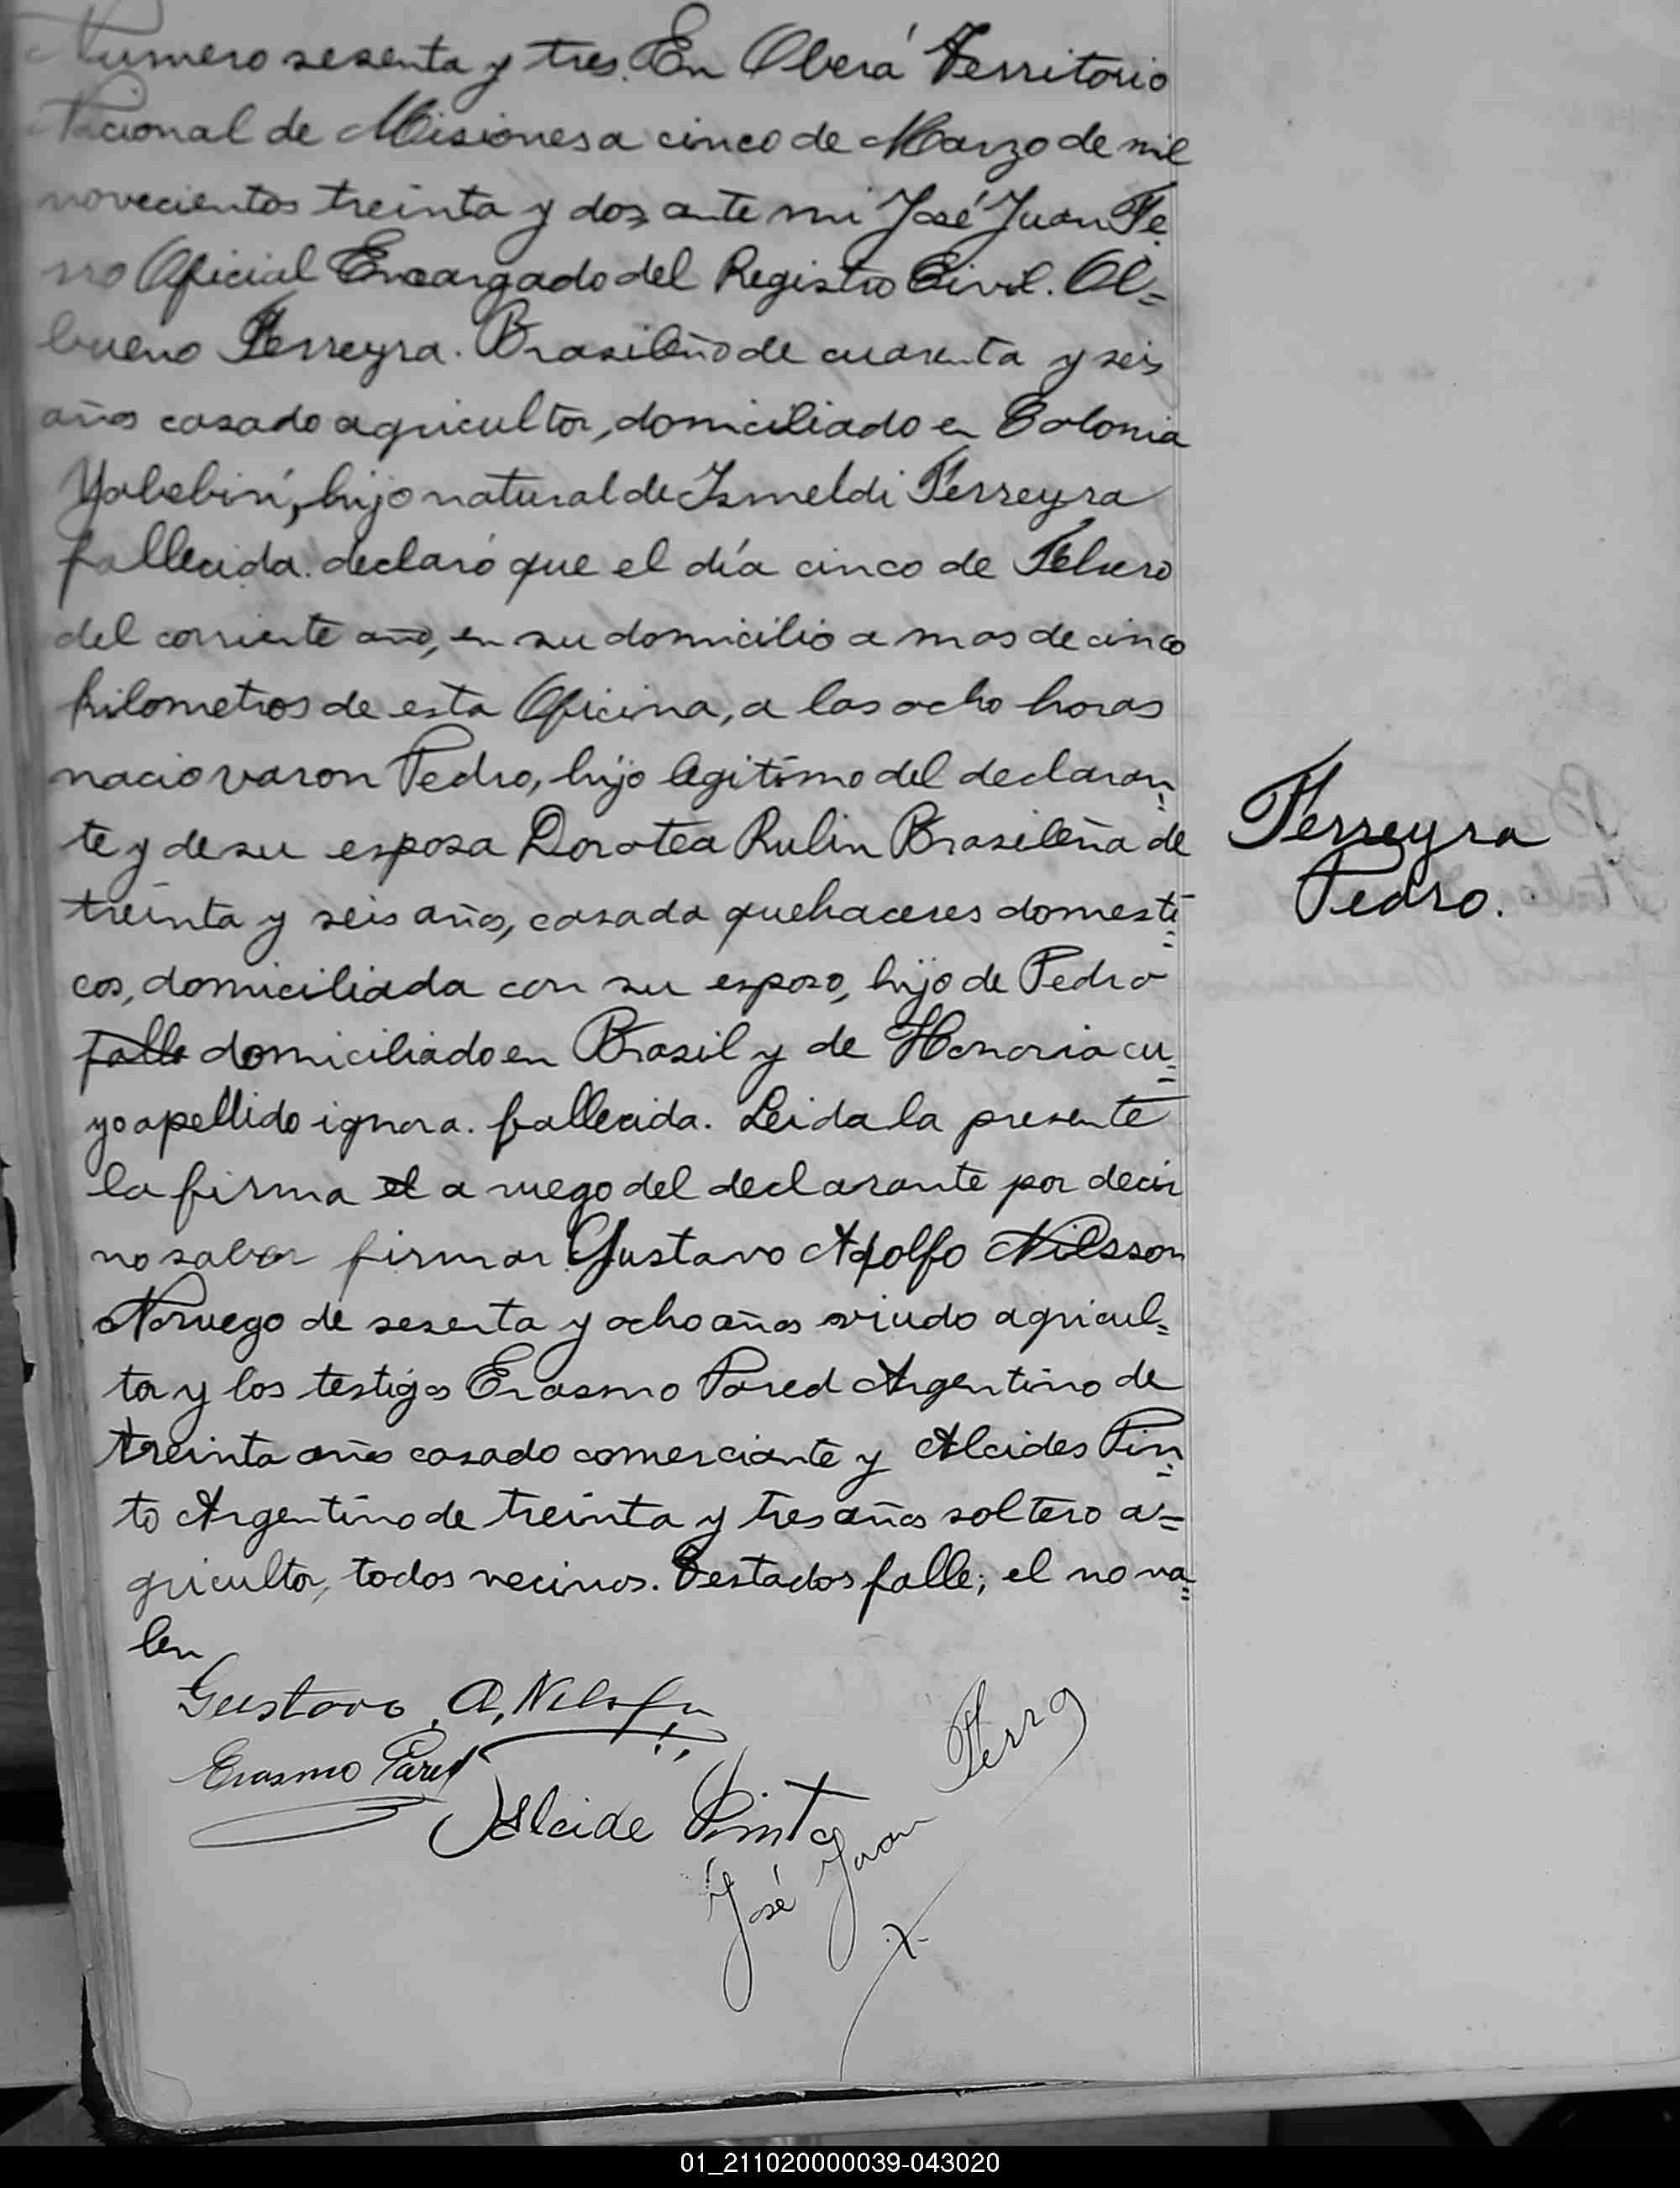 Numero sesenta y tres. En Oberá Territorio
Nacional de Misiones a cinco de Marzo de mil
novecientos treinta y dos, ante mi José Juan Fe
rro Oficial Encargado del Registro Civil. Ol=
bueno Ferreyra. Brasileño de cuarenta y seis
años casado agricultor, domiciliado en Colonia
Yabebirí, hijo natural de Ismeldi Ferreyra
fallecida. declaró que el día cinco de Febrero
del corriente año, en su domicilio a mas de cinco
kilometros de esta Oficina, a las ocho horas
nacio varon Pedro, hijo legitimo del declaran
te y de su esposa Dorotea Rulin Brasileña de
treinta y seis años, casada quehaceres domesti=
cos, domiciliada con su esposo, hijo de Pedro
falle domiciliado en Brasil y de Honoria cu=
yo apellido ignora. fallecida. Leida la presente
la firma el a ruego del declarante por decir
no saber firmar Gustavo Adolfo Nilsson
Noruego de sesenta y ocho años viudo agricul=
tor y los testigos Erasmo Pared Argentino de
treinta años casado comerciante y Alcides Pin=
to Argentino de treinta y tres años soltero a=
gricultor, todos vecinos. Testados falle; el no va=
len
Ferreyra
Pedro.
Gustavo. A. Nilsson
Erasmo Pared
Alcide Pinto
José Juan Ferro
01_211020000039-043020